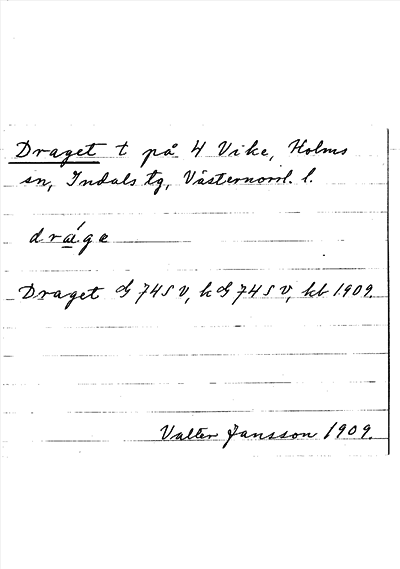 Draget t på 4 Vike, Holms
sn, Indals tg, Västernorrl. l.
dráge
Draget G 74 S V, k G 74 S V, kb 1909.
Valter Jansson 1909.